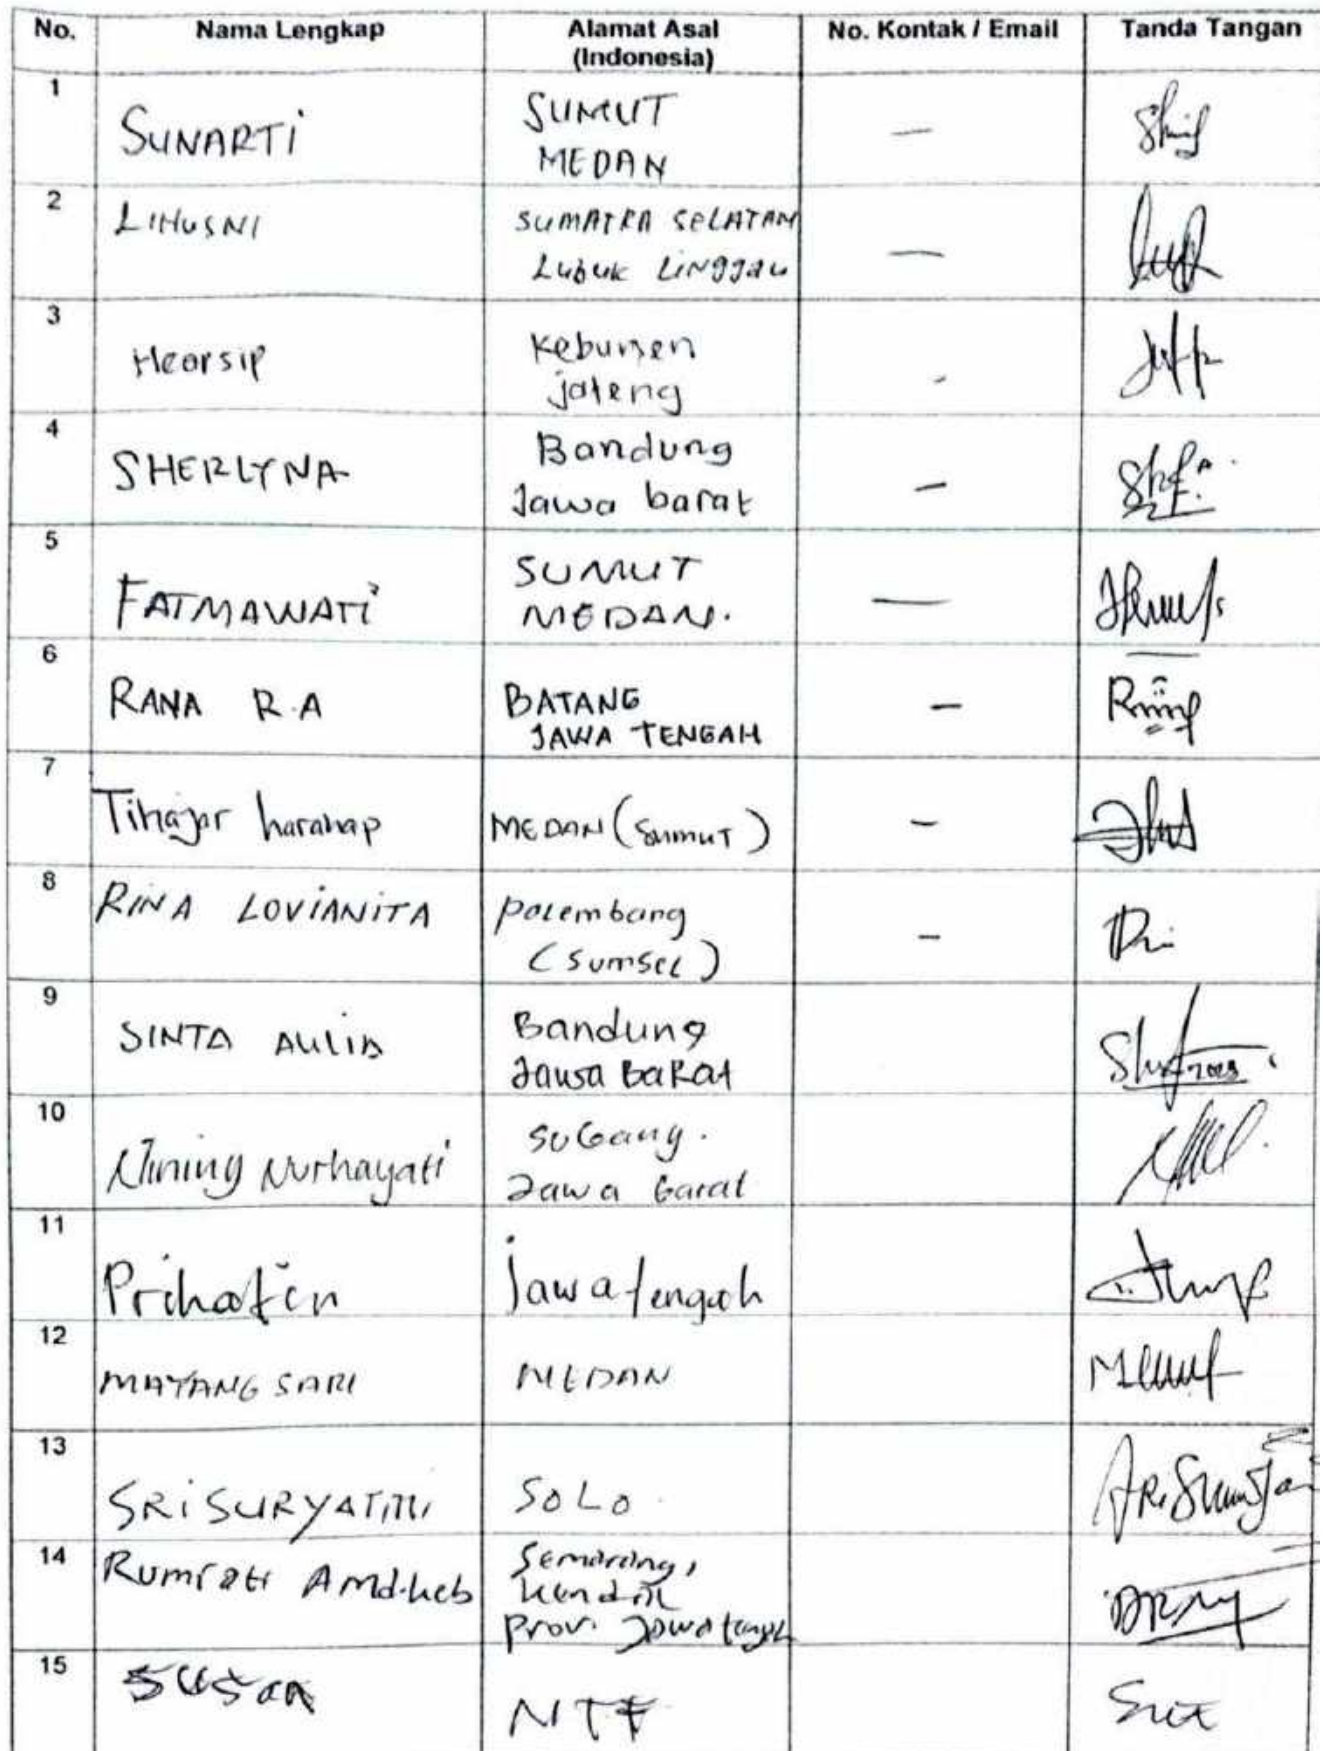 No. Nama Lengkap Alamat Asal No. Kontak / Email Tanda Tangan
(Indonesia)
1
SUNARTI
SUMUT
MEDAN
—
2
LIHUSNI
SUMATRA SELATAN
Lubuk LINGGau
—
3
Heorsip
Kebumen
jateng
-
4
SHERLYNA
Bandung
Jawa barat
—
5
FATMAWATI
SUMUT
MEDAN.
—
6
RANA R.A
BATANG
JAWA TENGAH
—
7
Tihajar harahap
MEDAN (Sumut)
—
8
RINA LOVIANITA
Palembang
(Sumsel)
—
9
SINTA AULIA
Bandung
Jawa BaRat
10
Nining Nurhayati
Subang.
Jawa barat
11
Prihatin
Jawa tengah
12
MAYANG SARI
MEDAN
13
SRI SURYATMI
SOLO
14
Amd.keb
Semarang,
Kendal
Prov. Jawa tengah
15
SUSAN
NTT